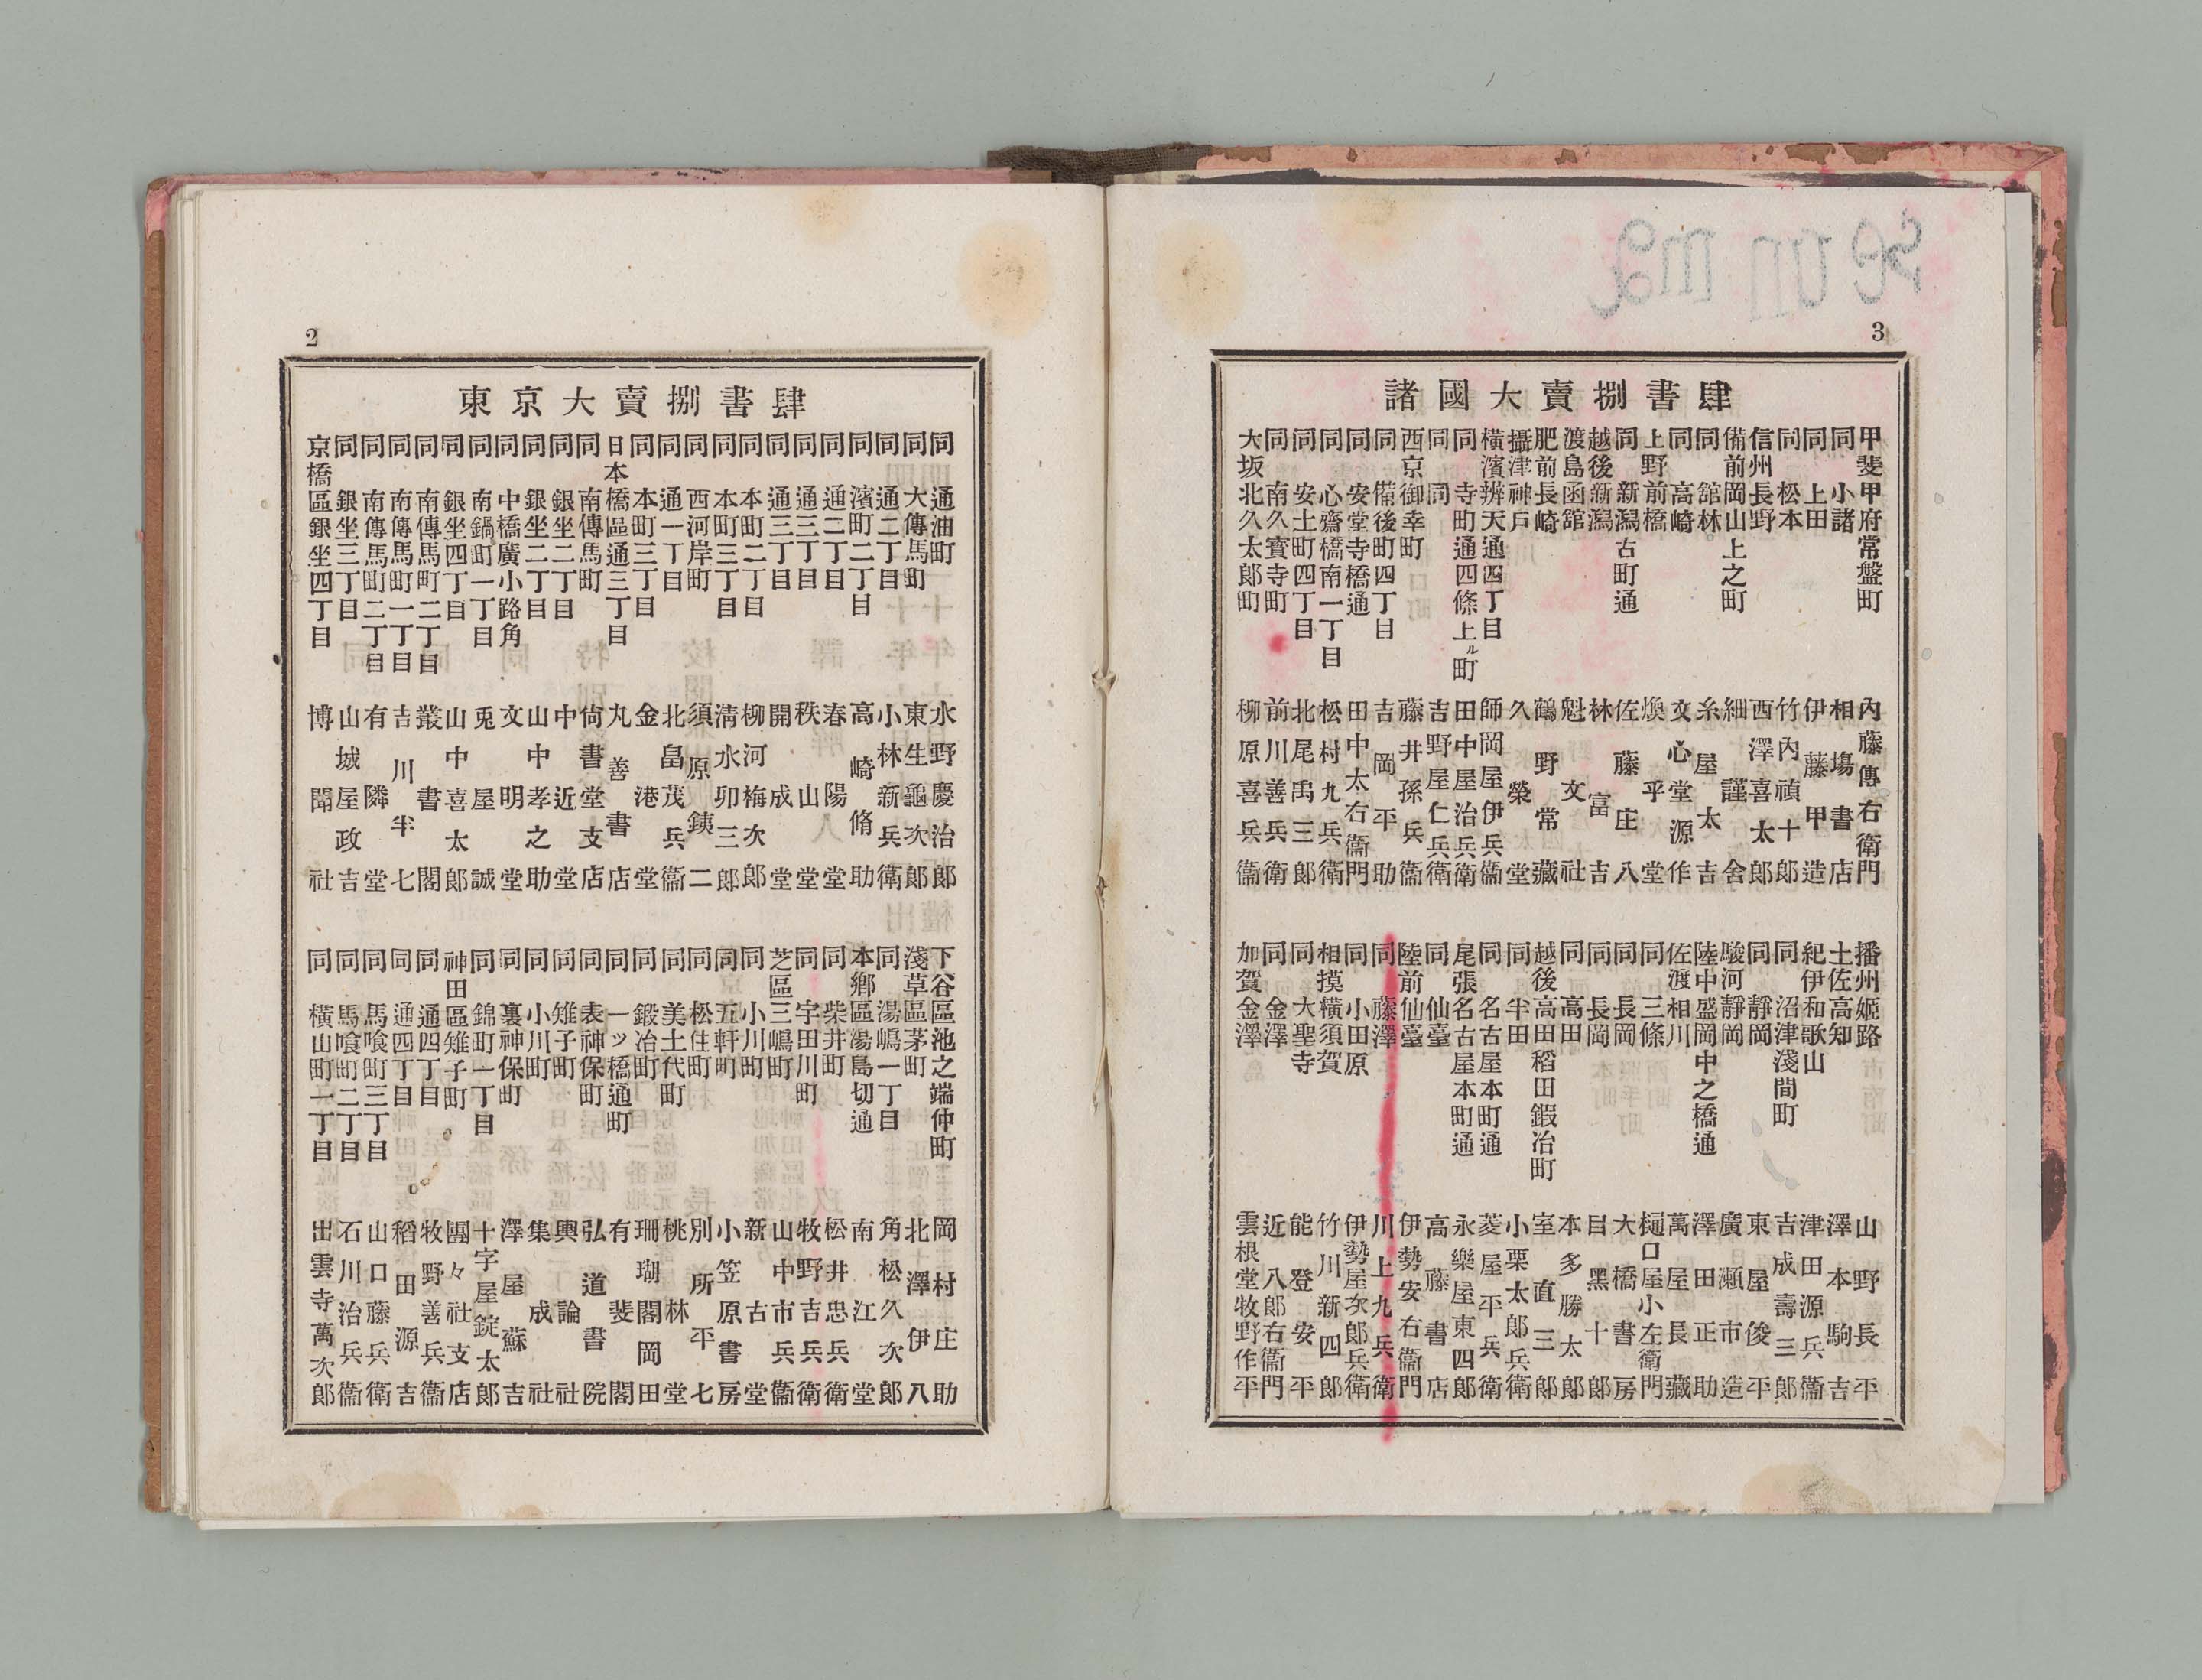 2
東京大賣捌書肆
京橋區銀坐四丁目 博聞社
同 銀坐三丁目 山城屋政吉
同 南傳馬町二丁目 有隣堂
同 南傳馬町一丁目 吉川半七
同 南傳馬町二丁目 叢書閣
同 銀坐四丁目 山中喜太郎
同 南鍋町一丁目 兎屋誠
同 中橋廣小路角 文明堂
同 銀坐二丁目 山中孝之助
同 銀坐二丁目 中近堂
同 南傳馬町 尚書堂支店
日本橋區通三丁目 丸善書店
同 本町三丁目 金港堂
同 通一丁目 北畠茂兵衞
同 西河岸町 須原銕二
同 本町三丁目 清水卯三郎
同 本町二丁目 柳河梅次郎
同 通三丁目 開成堂
同 通三丁目 秩山堂
同 通二丁目 春陽堂
同 濱町二丁目 高崎脩助
同 通二丁目 小林新兵衛
同 大傳馬町 東生龜次郎
同 通油町 水野慶治郎
同 橫山町一丁目 出雲寺萬次郎
同 馬喰町二丁目 石川治兵衞
同 馬喰町三丁目 山口藤兵衛
同 通四丁目 稻田源吉
同 通四丁目 牧野善兵衞
神田區雉子町 團々社支店
同 錦町一丁目 十字屋錠太郎
同 裏神保町 澤屋蘇吉
同 小川町 集成社
同 雉子町 興論社
同 表神保町 弘道書院
同 一ッ橋通町 有斐閣
同 鍛冶町 珊瑚閣岡田
同 美土代町 桃林堂
同 松住町 別所平七
同 五軒町 小笠原書房
同 小川町 新古堂
芝區三嶋町 山中市兵衞
同 宇田川町 牧野吉兵衛
同 柴井町 松井忠兵衛
本鄕區湯島切通 南江堂
同 湯嶋一丁目 角松久次郎
淺草區茅町 北澤伊八
下谷區池之端仲町 岡村庄助
3
諸國大賣捌書肆
大坂北久太郎町 柳原喜兵衞
同 南久寳寺町 前川善兵衛
同 安土町四丁目 北尾禹三郎
同 心齋橋南一丁目 松村九兵衛
同 安堂寺橋通 田中太右衞門
同 備後町四丁目 吉岡平助
西京御幸町 藤井孫兵衞
同 同 吉野屋仁兵衛
同 寺町通四條上ル町 田中屋治兵衛
橫濱辨天通四丁目 師岡屋伊兵衞
攝津神戸 久榮堂
肥前長崎 鶴野常藏
渡島函舘 魁文社
越後新潟 林富吉
同 新潟古町通 佐藤庄八
上野前橋 煥乎堂
同 高崎 文心堂源作
同 舘林 糸屋太吉
備前岡山上之町 細謹舍
信州長野 西澤喜太郎
同 松本 竹內禎十郎
同 上田 伊藤甲造
同 小諸 相塲書店
甲斐甲府常盤町 內藤傳右衛門
加賀金澤 雲根堂牧野作平
同 金澤 近八郎右衞門
同 大聖寺 能登安平
相摸橫須賀 竹川新四郎
同 小田原 伊勢屋次郎兵衛
同 藤澤 川上九兵衛
陸前仙臺 伊勢安右衞門
同 仙臺 高藤書店
尾張名古屋本町通 永樂屋東四郎
同 名古屋本町通 菱屋平兵衛
同 半田 小栗太郎兵衛
越後高田稻田鍜冶町 室直三郎
同 高田 本多勝太郎
同 長岡 目黑十郎
同 長岡 大橋書房
同 三條 樋口屋小左衛門
佐渡相川 萬屋長藏
陸中盛岡中之橋通 澤田正助
駿河靜岡 廣瀬市造
同 靜岡 東屋俊平
同 沼津淺間町 吉成壽三郎
紀伊和歌山 津田源兵衞
土佐高知 澤本駒吉
播州姬路 山野長平